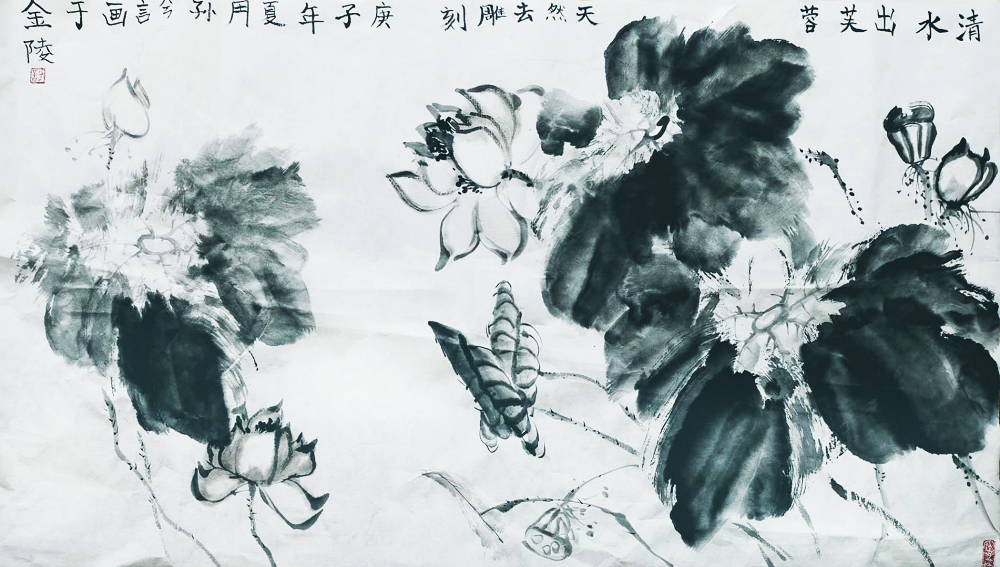 清水出芙蓉
天然去雕刻
庚子年夏月孙兮言画于金陵